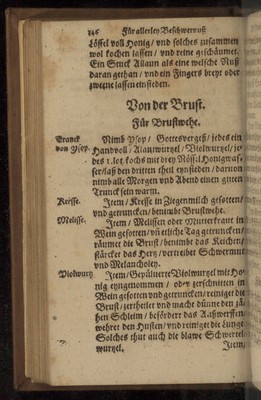 146 Für allerley Beschwernuß
Löffel voll Honig / vnd solches zusammen
wol kochen lassen / vnd reine geschäumet.
Ein Stuck Allaun als eine welsche Nuß
daran gethan / vnd ein Fingers breyt oder
zweene lassen einsieden.
Von der Brust.
Für Brustwehe.
Tranck von Ysop.
Nimb Ysop / Gottesvergeß / jedes ein
Handvoll / Alantwurtzel / Violwurtzel / je
des 1. lot. kochs mit drey Nössel Honigwas
ser / laß den dritten theil eynsieden / darvon
nimb alle Morgen vnd Abend einen guten
Trunck sein warm.
Kresse. Item / Kresse in Ziegenmilch gesotten /
vnd getruncken / benimbt Brustwehe.
Melisse. Item / Melissen oder Mutterkraut in
Wein gesotten / vñ etliche Tag getruncken /
räumet die Brust / benimbt das Keichen /
stärcket das Hertz / vertreibet Schwermut
vnd Melancholey.
Violwurtz. Item / Gepülverte Violwurtzel mit Ho
nig eyngenommen / oder zerschnitten in
Wein gesotten vnd getruncken / reiniget die
Brust / zertheilet vnd macht dünne den zä
hen Schleim / befördert das Außwerffen /
wehret den Husten / vnd reiniget die Lunge
Solches thut auch die blawe Schwertel
wurtzel.
Item /